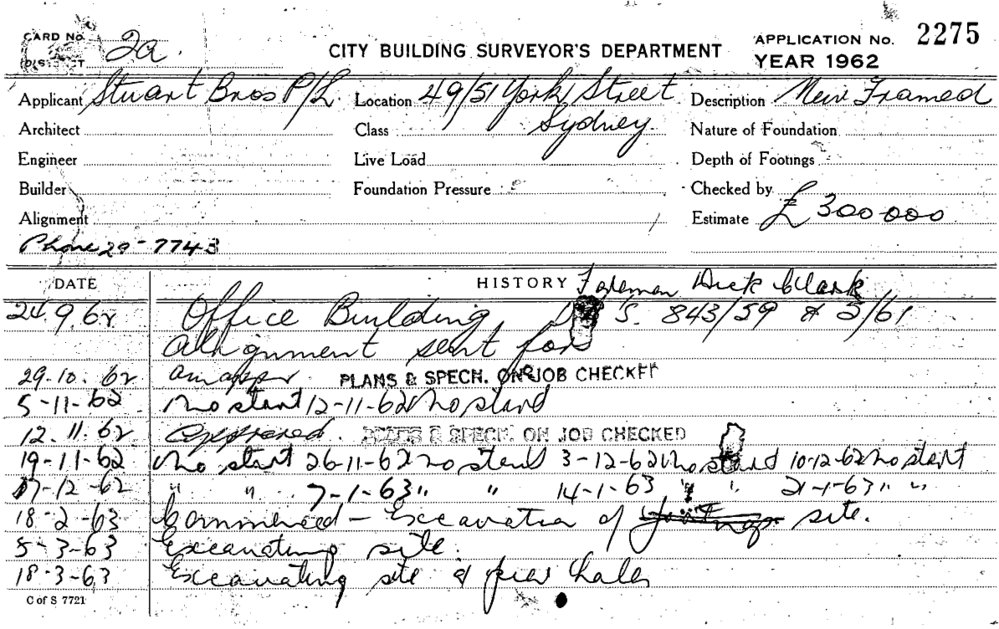 CARD No. 2a. CITY BUILDING SURVEYOR'S DEPARTMENT APPLICATION No. 2275
DISTRICT YEAR 1962
Applicant Stuart Bros P/L. Location 49/51 York Street Description New Framed
Architect Class Sydney. Nature of Foundation
Engineer Live Load Depth of Footings
Builder Foundation Pressure Checked by
Alignment Estimate £300000
Phone 29-7743
DATE HISTORY Foreman Dick Clark
24.9.62 Office Building S. 843/59 & 5/61
Alignment sent for
29.10.62 PLANS & SPECN. ON JOB CHECKED
5-11-62 No start 12-11-62 No start
12.11.62 Approved. PLANS & SPECN. ON JOB CHECKED
19-11-62 No start 26-11-62 no start 3-12-62 No start 10-12-62 No start
17-12-62 " " 7-1-63 " " 14-1-63 " " 21-1-63 " "
18-2-63 Commenced - Excavation of footings site.
5-3-63 Excavating site.
18-3-63 Excavating site & pier holes
C of S 7721